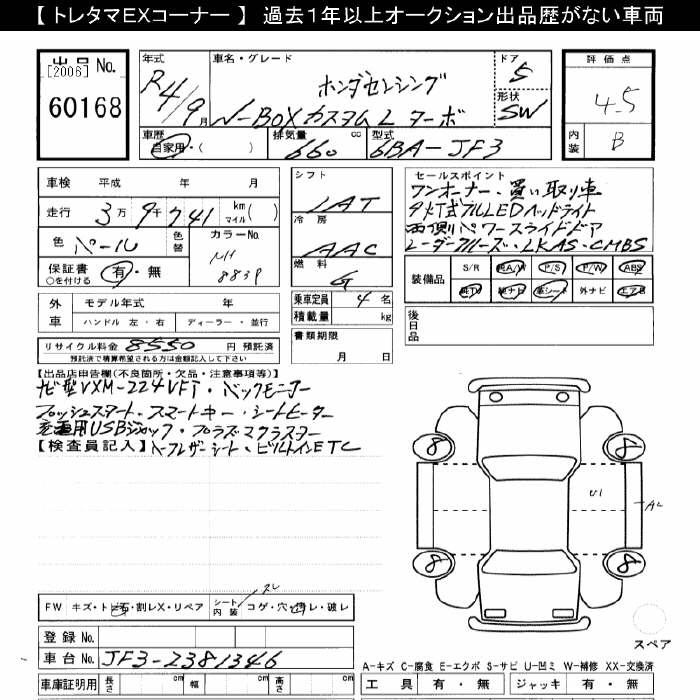 【 トレタマEXコーナー 】 過去1年以上オークション出品歴がない車両
出品 No.
[2006]
60168
年式
R4/9月
車名・グレード
ホンダセンシング
N-BOXカスタム L ターボ
ドア
5
形状
SW
評価点
4.5
内装
B
車歴
自家用・( )
排気量 cc
660
型式
6BA-JF3
車検 平成 年 月
走行 3万9千741 km マイル( )
色 パール 色替
カラーNo. NH 883P
保証書 有・無
○を付ける
外車 モデル年式 年
ハンドル 左・右 ディーラー・並行
リサイクル料金 8550 円 預託済
預託済で精算希望される方は金額記入して下さい
シフト
IAT
冷房
AAC
燃料
G
乗車定員 4 名
積載量 kg
書類期限
月 日
セールスポイント
ワンオーナー・買い取り車
9灯式フルLEDヘッドライト
両側パワースライドドア
レーダークルーズ・LKAS・CMBS
装備品 S/R 純A/W P/S P/W ABS
純TV 純ナビ 革シート 外ナビ エアB
後日品
【出品店申告欄(不良箇所・欠品・注意事項等)】
ナビ型VXM-224VFi・バックモニター
プッシュスタート、スマートキー・シートヒーター
充電用USBジャック・プラズマクラスター
【検査員記入】ハーフレザーシート・ビルトインETC
8 8
U1
A2
8 8
スレ
FW キズ・トビ石・割レX・リペア シート内装 コゲ・穴・切レ・破レ
スペア
登録 No.
車台 No. JF3-2381346
車庫証明用 長さ cm 幅 cm 高さ cm
A-キズ C-腐食 E-エクボ S-サビ U-凹ミ W-補修 XX-交換済
工具 有・無 ジャッキ 有・無